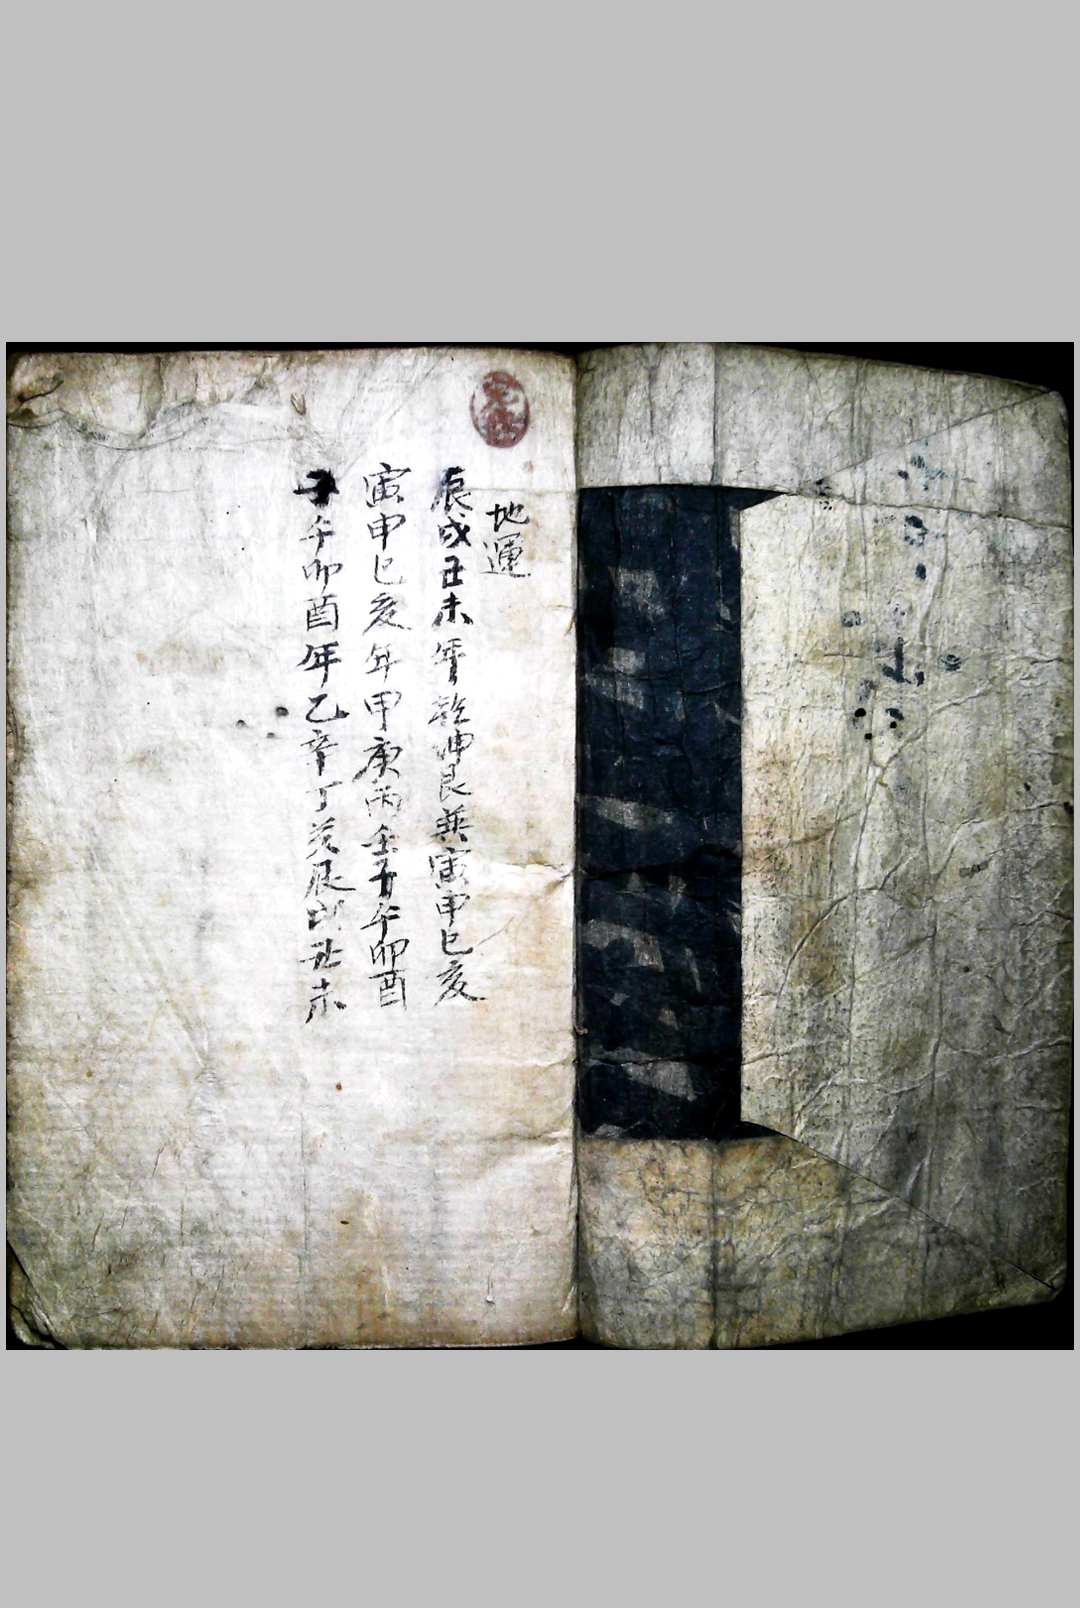 地運
辰戌丑未年乾坤艮巽寅申巳亥
寅申巳亥年甲庚丙壬子午卯酉
子午卯酉年乙辛丁癸辰戌丑未